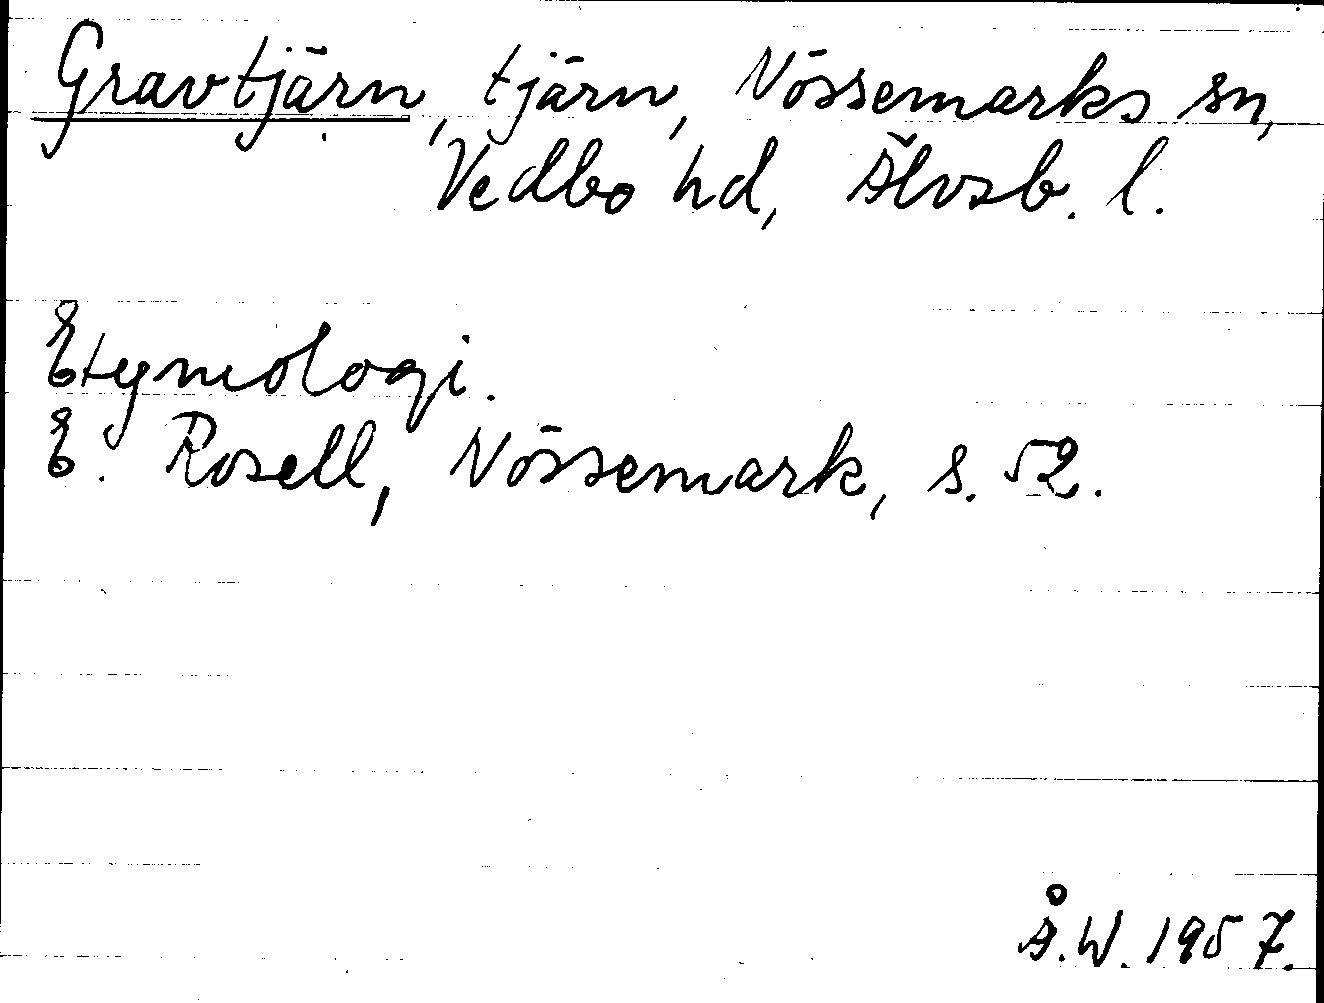 Gravtjärn, tjärn, Nössemarks sn,
Vedbo hd, Älvsb. l.
Etymologi.
E. Rosell, Nössemark, s. 52.
Å.W. 1957.